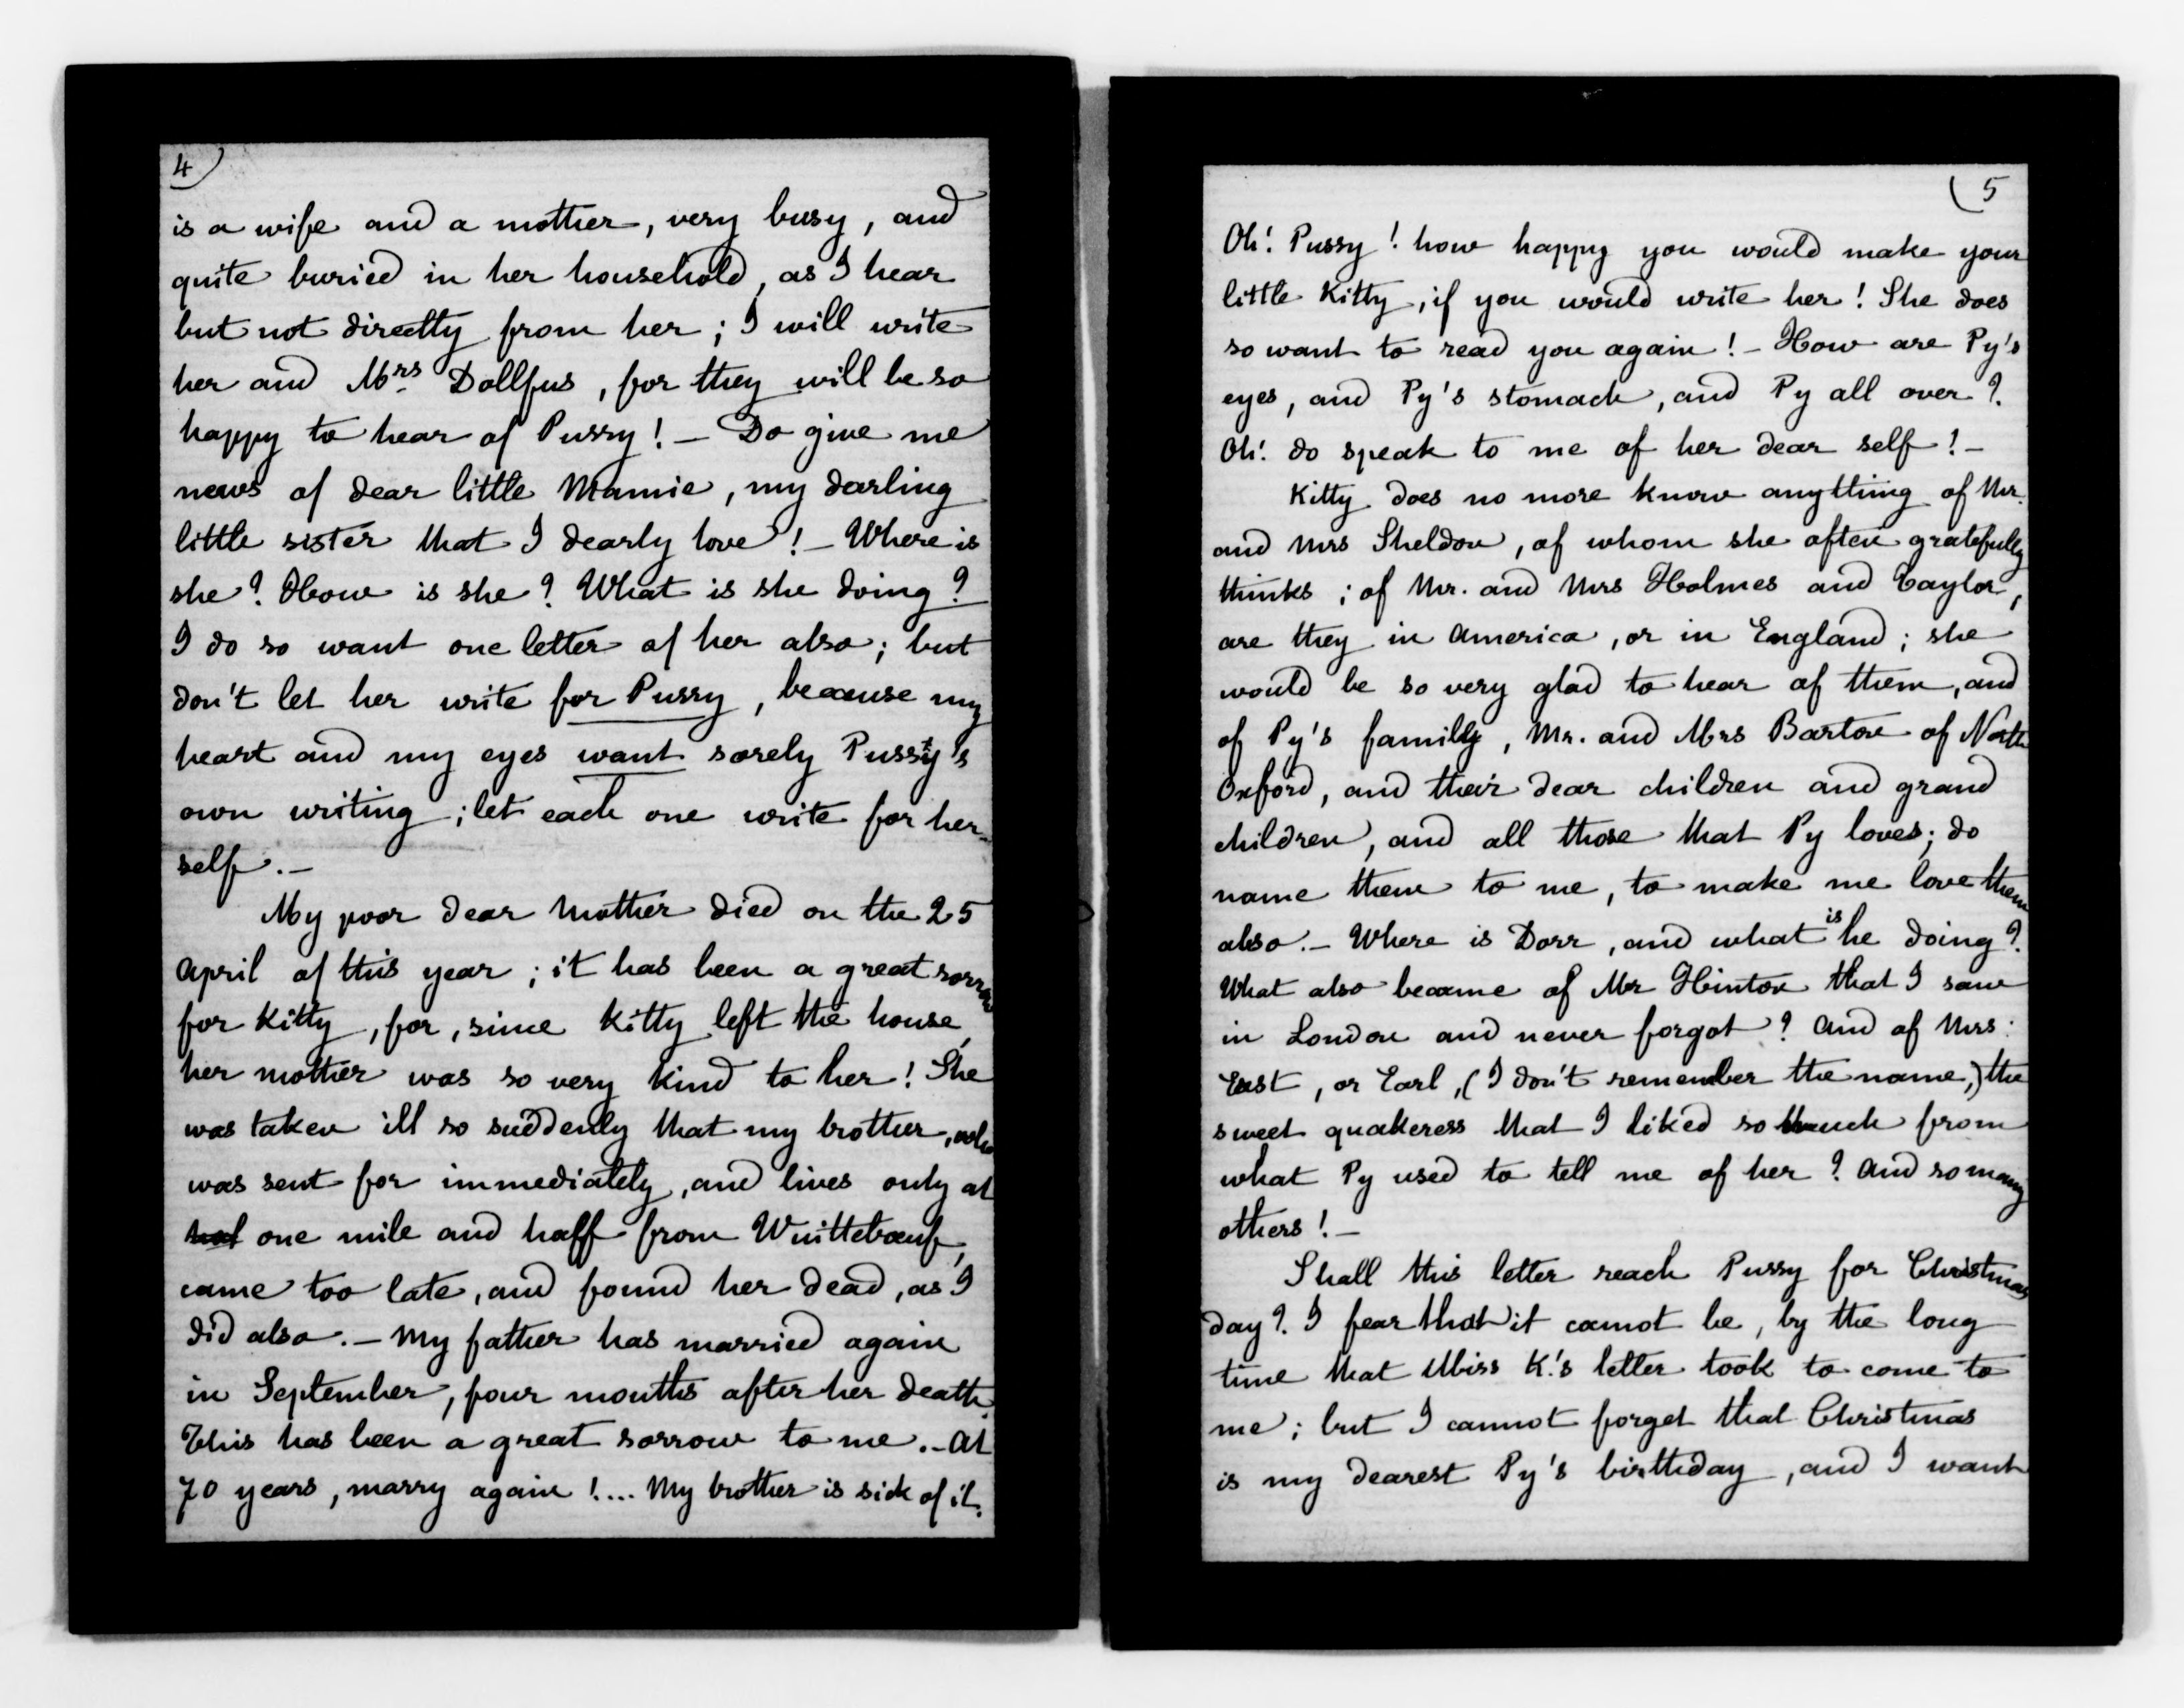 4)
is a wife and a mother, very busy, and
quite buried in her household, as I hear
but not directly from her; I will write
her and Mrs Dollfus, for they will be so
happy to hear of Pussy! – Do give me
news of dear little Mamie, my darling
little sister that I dearly love! – Where is
she? How is she? What is she doing?
I do so want one letter of her also; but
don't let her write for Pussy, because my
heart and my eyes want sorely Pussy's
own writing; let each one write for her-
self. –
My poor dear mother died on the 25
April of this year; it has been a great sorrow
for Kitty, for, since Kitty left the house,
her mother was so very kind to her! She
was taken ill so suddenly that my brother, who
was sent for immediately, and lives only at
one mile and haff from Wuittebœuf,
came too late, and found her dead, as I
did also. – My father has married again
in September, four months after her death.
This has been a great sorrow to me. – At
70 years, marry again! .... My brother is sick of it.
(5
Oh! Pussy! how happy you would make your
little Kitty, if you would write her! She does
so want to read you again! – How are Py's
eyes, and Py's stomack, and Py all over?
Oh! do speak to me of her dear self! –
Kitty does no more know anything of Mr.
and Mrs Sheldon, of whom she often gratefully
thinks; of Mr. and Mrs Holmes and Taylor,
are they in America, or in England; she
would be so very glad to hear of them, and
of Py's family, Mr. and Mrs Barton of North
Oxford, and their dear children and grand
children, and all those that Py loves; do
name them to me, to make me love them
also. – Where is Dorr, and what is he doing?
What also became of Mr Hinton that I saw
in London and never forgot? And of Mrs:
East, or Earl, (I don't remember the name,) the
sweet quakeress that I liked so much from
what Py used to tell me of her? And so many
others! –
Shall this letter reach Pussy for Christmas
day? I fear that it cannot be, by the long
time that Miss K.'s letter took to come to
me; but I cannot forget that Christmas
is my dearest Py's birthday, and I want